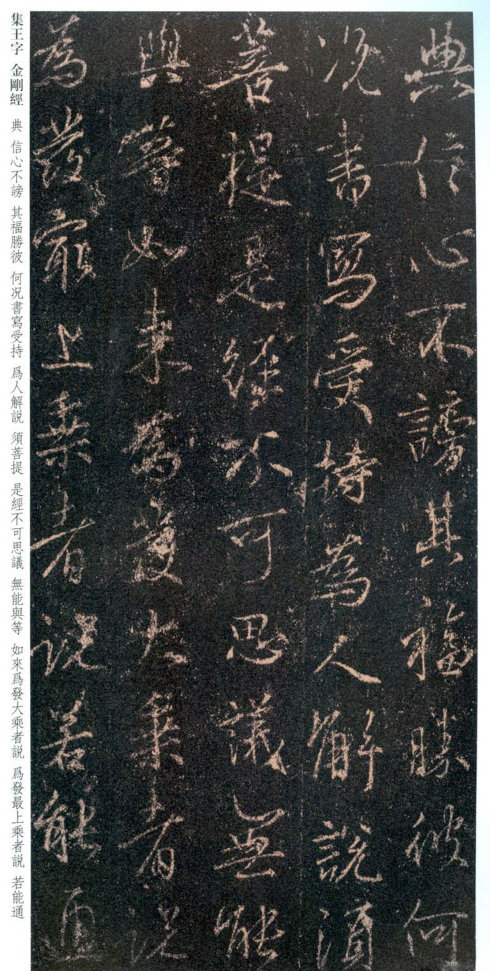 典信心不謗其福勝彼何
况書寫受持為人解說須
菩提是經不可思議無能
與等如來為發大乘者說
為發最上乘者說若能通
集王字 金剛經 典 信心不謗 其福勝彼 何况書寫受持 爲人解説 須菩提 是經不可思議 無能與等 如來爲發大乘者説 爲發最上乘者説 若能通